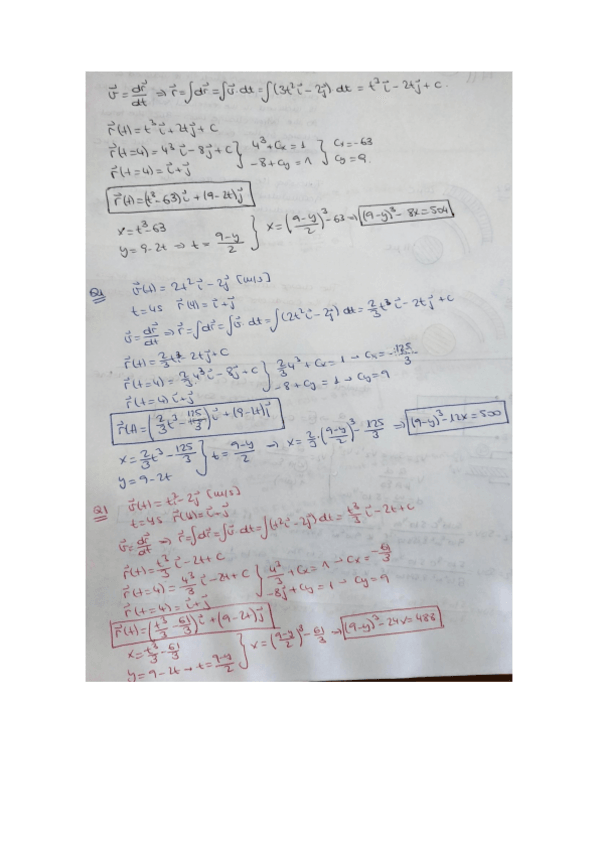 v⃗ = dr⃗/dt ⇒ r⃗ = ∫dr⃗ = ∫v⃗·dt = ∫(3t²i⃗ - 2j⃗) dt = t³i⃗ - 2tj⃗ + C
r⃗(t) = t³i⃗ + 2tj⃗ + C
r⃗(t=4) = 4³i⃗ - 8j⃗ + C } 4³ + Cx = 1 } Cx = -63
r⃗(t=4) = i⃗ + j⃗ } -8 + Cy = 1 } Cy = 9
r⃗(t) = (t³ - 63)i⃗ + (9 - 2t)j⃗
x = t³ - 63
y = 9 - 2t ⇒ t = (9-y)/2 } x = ((9-y)/2)³ - 63 ⇒ (9-y)³ - 8x = 504
v⃗(t) = 2t²i⃗ - 2j⃗ [m/s]
t = 4s r⃗(4) = i⃗ + j⃗
v⃗ = dr⃗/dt ⇒ r⃗ = ∫dr⃗ = ∫v⃗·dt = ∫(2t²i⃗ - 2j⃗) dt = 2/3 t³i⃗ - 2tj⃗ + C
r⃗(t) = 2/3 t³ - 2tj⃗ + C
r⃗(t=4) = 2/3 4³i⃗ - 8j⃗ + C } 2/3 4³ + Cx = 1 → Cx = -125/3
r⃗(t=4) i⃗ + j⃗ } -8 + Cy = 1 → Cy = 9
r⃗(t) = (2/3 t³ - 125/3)i⃗ + (9 - 2t)j⃗
x = 2/3 t³ - 125/3 } t = (9-y)/2 → x = 2/3·((9-y)/2)³ - 125/3 ⇒ (9-y)³ - 12x = 500
y = 9 - 2t
Q1 v⃗(t) = t²i⃗ - 2j⃗ [m/s]
t = 4s r⃗(4) = i⃗ + j⃗
v⃗ = dr⃗/dt ⇒ r⃗ = ∫dr⃗ = ∫v⃗·dt = ∫(t²i⃗ - 2j⃗) dt = t³/3 i⃗ - 2t + C
r⃗(t) = t³/3 i⃗ - 2t + C
r⃗(t=4) = 4³/3 i⃗ - 2t + C } 4³/3 + Cx = 1 → Cx = -61/3
r⃗(t=4) = i⃗ + j⃗ } -8j⃗ + Cy = 1 → Cy = 9
r⃗(t) = (t³/3 - 61/3)i⃗ + (9 - 2t)j⃗
x = t³/3 - 61/3
y = 9 - 2t → t = (9-y)/2 } x = ((9-y)/2)³ - 61/3 ⇒ (9-y)³ - 24x = 488